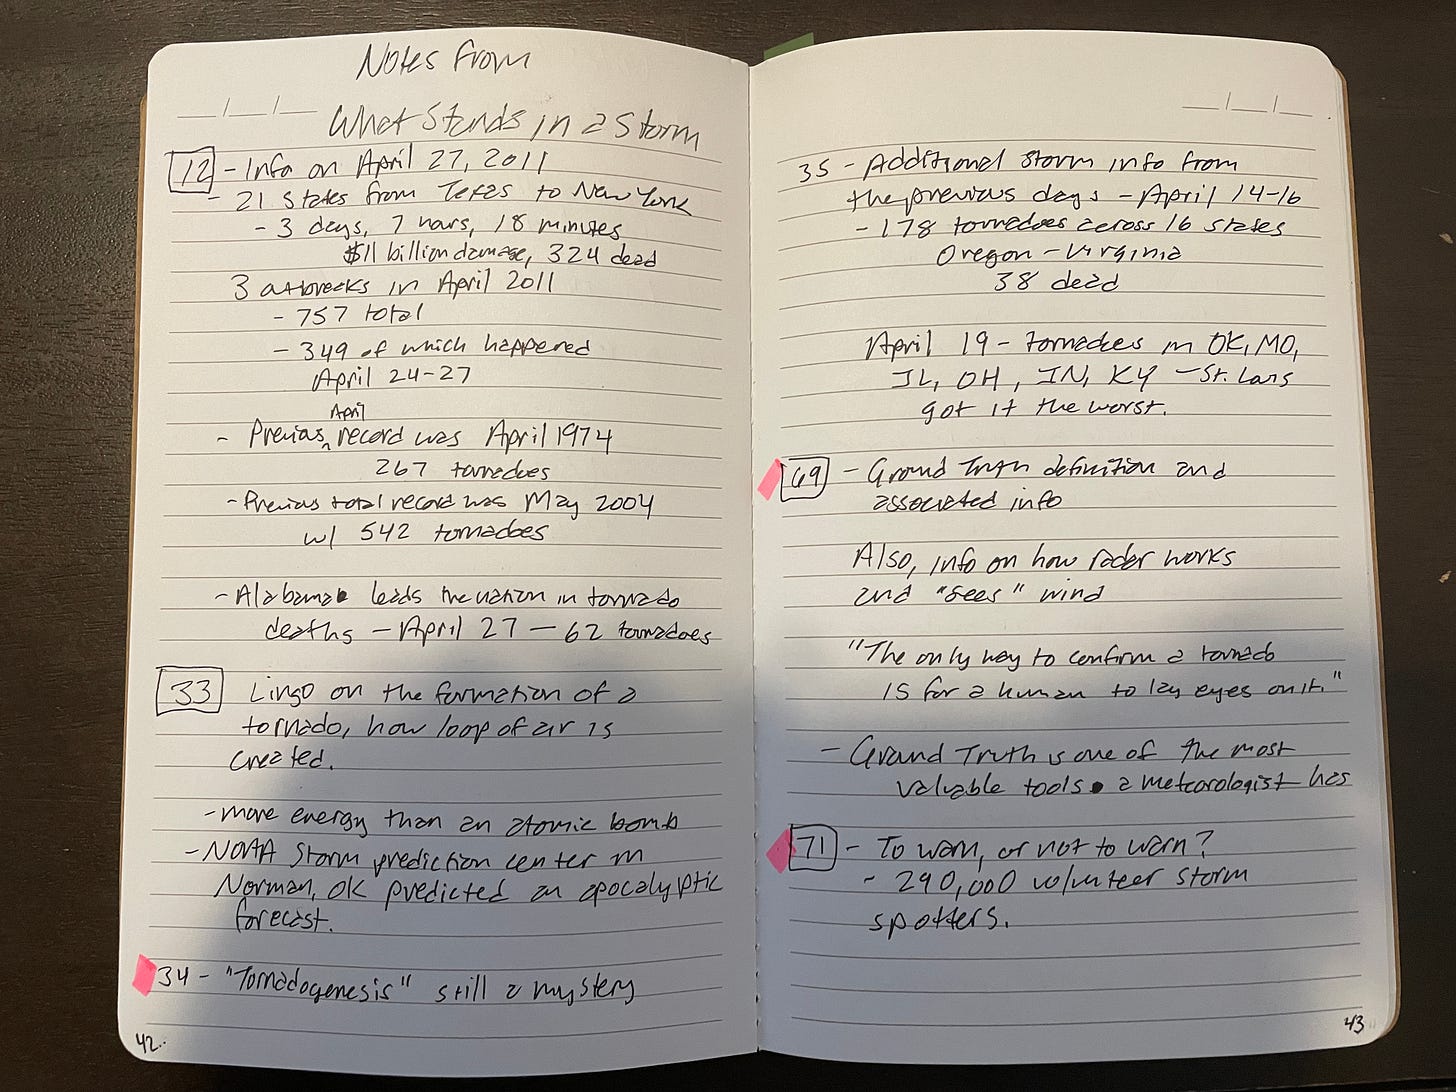 Notes from
What Stands in a Storm
12 - Info on April 27, 2011
- 21 states from Texas to New York
- 3 days, 7 hours, 18 minutes
$11 billion damage, 324 dead
3 outbreaks in April 2011
- 757 total
- 349 of which happened
April 24-27
April
- Previous ^ record was April 1974
267 tornadoes
- Previous total record was May 2004
w/ 542 tornadoes
- Alabama leads the nation in tornado
deaths - April 27 - 62 tornadoes
33 Lingo on the formation of a
tornado, how loop of air is
created.
- more energy than an atomic bomb
- NOAA Storm prediction center in
Norman, OK predicted an apocalyptic
forecast.
34 - "Tornadogenesis" still a mystery
42
35 - Additional storm info from
the previous days - April 14-16
- 178 tornadoes across 16 states
Oregon - Virginia
38 dead
April 19 - tornadoes in OK, MO,
IL, OH, IN, KY - St. Louis
got it the worst.
69 - Ground Truth definition and
associated info
Also, info on how radar works
and "sees" wind
"The only way to confirm a tornado
is for a human to lay eyes on it."
- Ground Truth is one of the most
valuable tools a meteorologist has
71 - To warn, or not to warn?
- 290,000 volunteer storm
spotters.
43